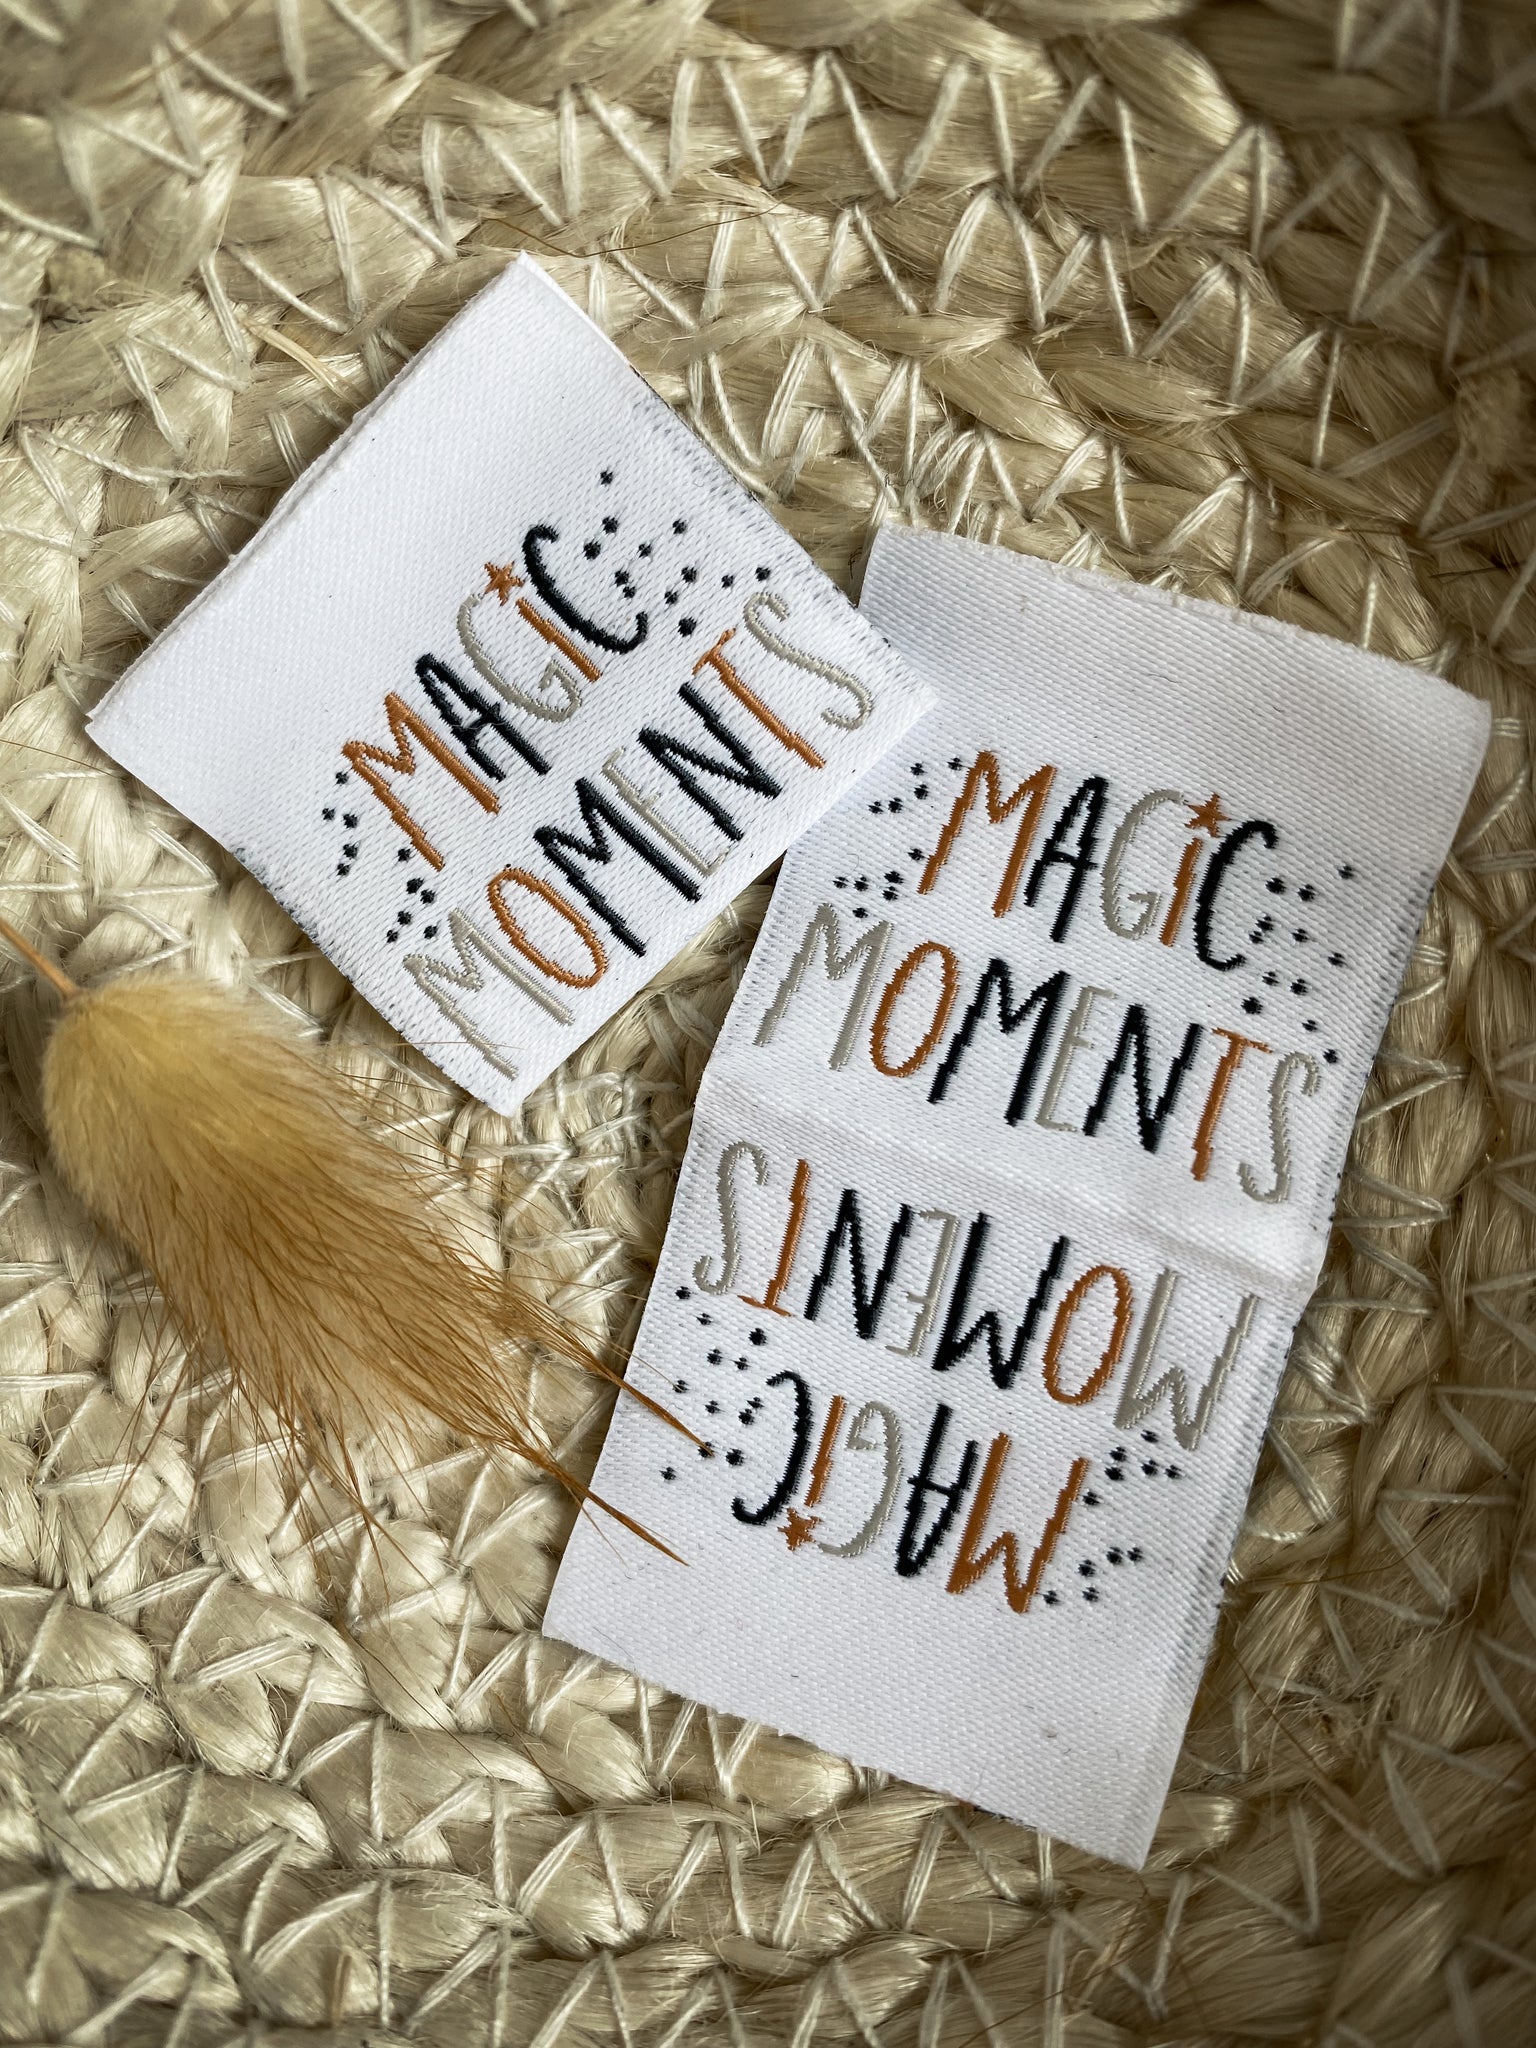 MAGIC
MOMENTS
MAGIC
MOMENTS
MAGIC
MOMENTS